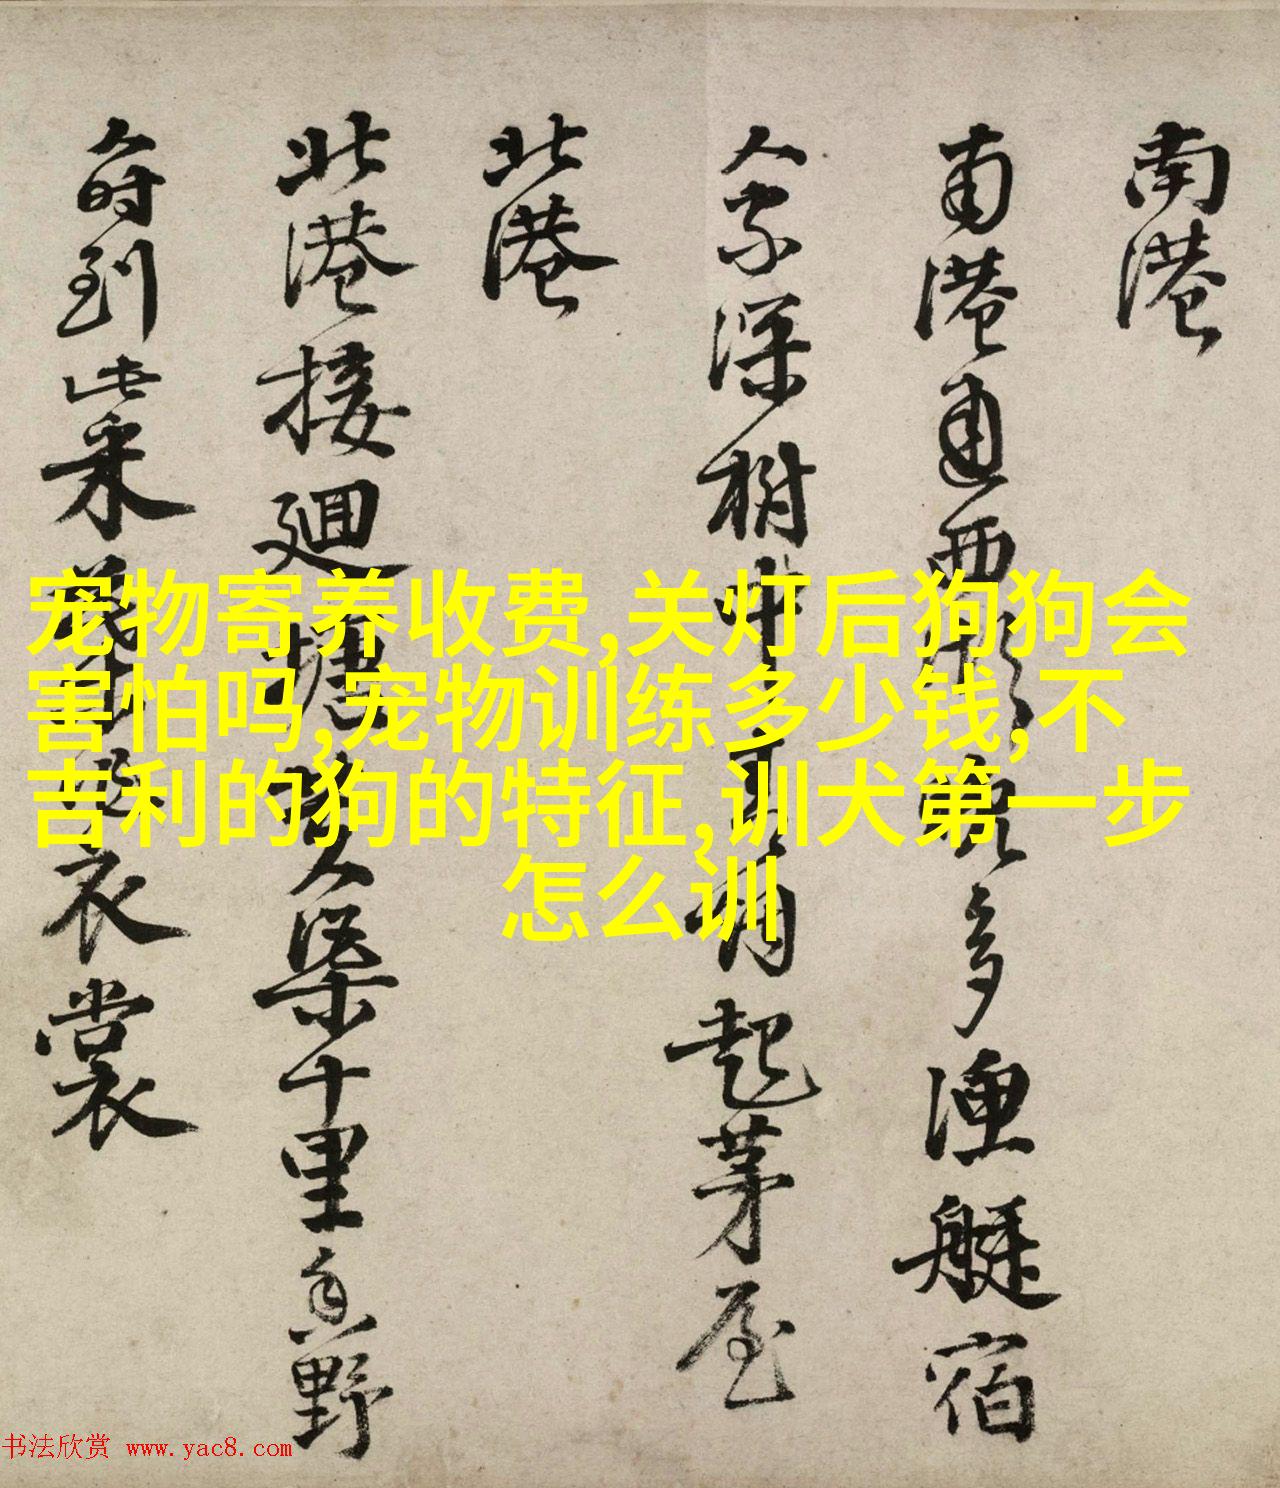 南港
南港通西多漁艇宿
人家深樹中起茅屋
北港
北港接廻塘渠十里香野
人時到此采衣裳
宠物寄养收费,关灯后狗狗会
害怕吗,宠物训练多少钱,不
吉利的狗的特征,训犬第一步
怎么训
书法欣赏 www.yac8.com